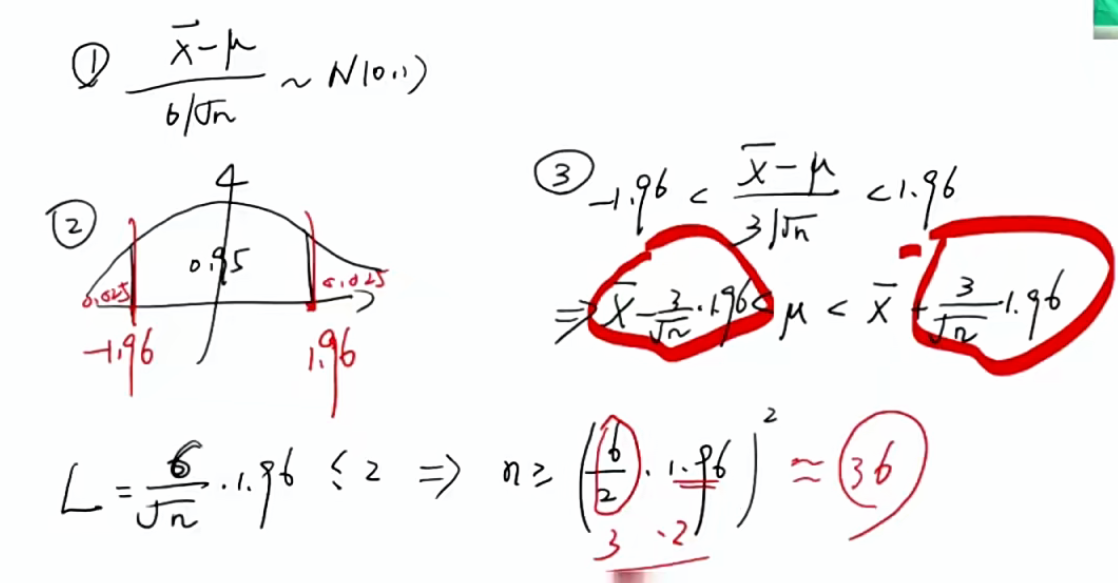 ① (x̄ - μ)/(σ/√n) ~ N(0,1)
②
0.95
0.025 0.025
-1.96 1.96
③ -1.96 < (x̄ - μ)/(3/√n) < 1.96
⇒ x̄ - 3/√n · 1.96 < μ < x̄ + 3/√n · 1.96
L = 6/√n · 1.96 ≤ 2 ⇒ n ≥ (6/2 · 1.96)² ≈ 36
3 · 2